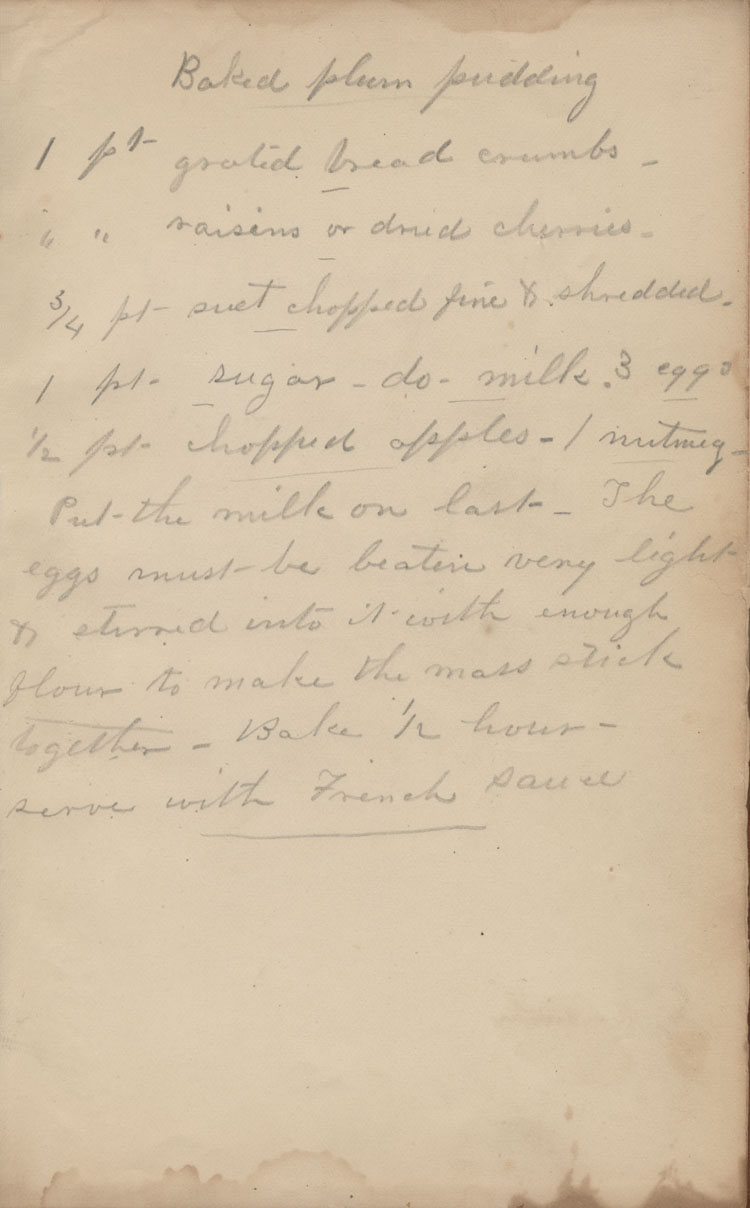 Baked plum pudding
1 pt grated bread crumbs -
" " raisins or dried cherries -
3/4 pt - suet chopped fine & shredded.
1 pt - sugar - do - milk. 3 eggs
1/2 pt - chopped apples - 1 nutmeg -
Put - the milk on last - The
eggs must - be beaten very light -
& stirred into it with enough
flour to make the mass stick
together - Bake 1/2 hour -
serve with French sauce